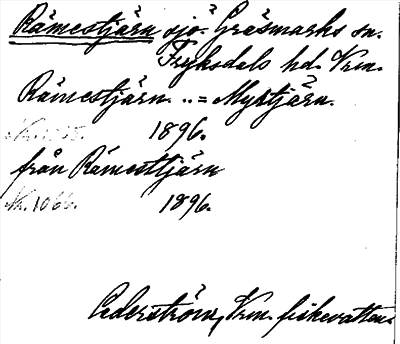 Rämestjärn sjö. Gräsmarks sn.
Fryksdals hd. Vrm.
Rämestjärn ..= Mystjärn.
1896.
från Rämesttjärn
Nr. 1066. 1896.
Cederström, Vrm. fiskevatten.